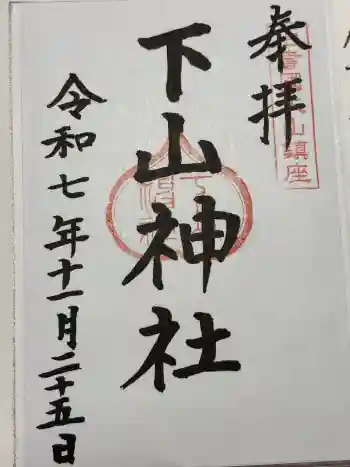 奉拝
下山神社
令和七年十一月二十五日